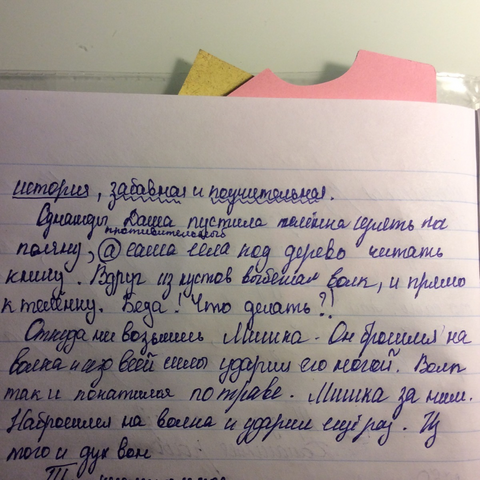 история, забавная и поучительная.
Однажды Даша пустила телёнка гулять на
противительного
поляну, а сама села под дерево читать
книгу. Вдруг из кустов выбежал волк, и прямо
к теленку. Беда! Что делать?!
Откуда ни возьмись Мишка. Он бросился на
волка и изо всей силы ударил его ногой. Волк
так и покатился по траве. Мишка за ним.
Набросился на волка и ударил ещё раз. Из
того и дух вон
III